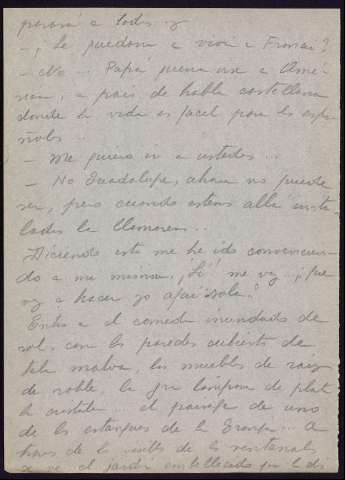 a todos y
- ¿Se quedaran a vivir a Francia?
- No... Papá quiere ir a Amé-
rica, a pais de habla castellana
donde la vida es facil para los espa-
ñoles...
- Me quiero ir a ustedes...
- No Guadalupe, ahora no puede
ser, pero cuando estemos allá insta-
lados la llamaremos...
Diciendo esto me he ido convencien-
do a mi misma. ¡Sí! me voy ¡que
voy a hacer yo aquí sola?
Entro a el comedor inundado de
sol, con las paredes cubiertas de
tela malva, los muebles de raiz
de roble, la gran lampara de plata
la cristalera... el paisaje de uno
de los estanques de la Granja... A
traves de la de los ventanales
se ve el jardin